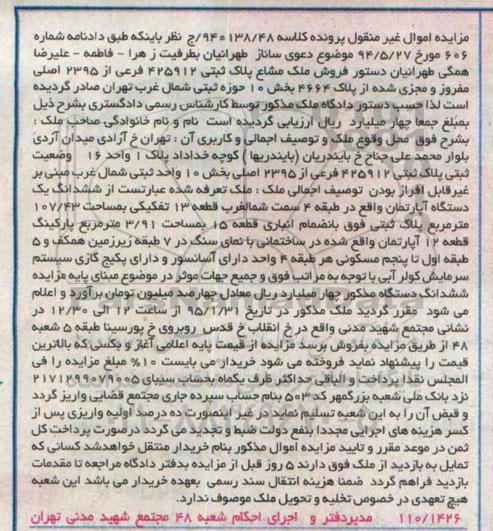 مزایده اموال غیر منقول پرونده کلاسه ۹۴۰۱۳۸/۴۸/ج نظر باینکه طبق دادنامه شماره
۶۰۶ مورخ ۹۴/۵/۲۷ موضوع دعوی ساناز طهرانیان بطرفیت ز هرا - فاطمه - علیرضا
همگی طهرانیان دستور فروش ملک مشاع پلاک ثبتی ۴۲۵۹۱۲ فرعی از ۲۳۹۵ اصلی
مفروز و مجزی شده از پلاک ۴۶۶۴ بخش ۱۰ حوزه ثبتی شمال غرب تهران صادر گردیده
است لذا حسب دستور دادگاه ملک مذکور توسط کارشناس رسمی دادگستری بشرح ذیل
بمبلغ جمعا چهار میلیارد ریال ارزیابی گردیده است نام و نام خانوادگی صاحب ملک :
بشرح فوق محل وقوع ملک و توصیف اجمالی و کاربری آن : تهران خ آزادی میدان آزدی
بلوار محمد علی جناح خ بایندریان (بایندریها ) کوچه خداداد پلاک ۱ واحد ۱۶ وضعیت
ثبتی پلاک ثبتی ۴۲۵۹۱۲ فرعی از ۲۳۹۵ اصلی بخش ۱۰ واحد ثبتی شمال غرب مبنی بر
غیرقابل افراز بودن توصیف اجمالی ملک : ملک تعرفه شده عبارتست از ششدانگ یک
دستگاه آپارتمان واقع در طبقه ۴ سمت شمالغرب قطعه ۱۳ تفکیکی بمساحت ۱۰۷/۴۳
مترمربع پلاک ثبتی فوق بانضمام انباری قطعه ۱۵ بمساحت ۳/۹۱ مترمربع پارکینگ
قطعه ۱۲ آپارتمان واقع شده در ساختمانی با نمای سنگ در ۷ طبقه زیرزمین همکف و ۵
طبقه اول تا پنجم مسکونی هر طبقه ۴ واحد دارای آسانسور و دارای پکیج گازی سیستم
سرمایش کولر آبی با توجه به مراتب فوق و جمیع جهات موثر در موضوع مبنای پایه مزایده
ششدانگ دستگاه مذکور چهار میلیارد ریال معادل چهارصد میلیون تومان برآورد و اعلام
می شود مقرر گردید ملک مذکور در تاریخ ۹۵/۱/۳۱ از ساعت ۱۲ الی ۱۲/۳۰ در
نشانی مجتمع شهید مدنی واقع در خ انقلاب خ قدس روبروی خ پورسینا طبقه ۵ شعبه
۴۸ از طریق مزایده بفروش برسد مزایده از قیمت پایه اعلامی آغاز و بکسی که بالاترین
قیمت را پیشنهاد نماید فروخته می شود خریدار می بایست ۱۰% مبلغ مزایده را فی
المجلس نقدا پرداخت و الباقی حداکثر ظرف یکماه بحساب سیبای ۲۱۷۱۲۹۹۰۷۹۰۰۵
نزد بانک ملی شعبه بزرگمهر کد ۵۰۳ بنام حساب سپرده جاری مجتمع قضایی واریز گردد
و قبض آن را به این شعبه تسلیم نماید در غیر اینصورت ده درصد اولیه واریزی پس از
کسر هزینه های اجرایی مجددا بنفع دولت ضبط و تجدید می گردد درصورت پرداخت کل
ثمن در موعد مقرر و تایید مزایده اموال مذکور بنام خریدار منتقل خواهدشد کسانی که
تمایل به بازدید از ملک فوق دارند ۵ روز قبل از مزایده بدفتر دادگاه مراجعه تا مقدمات
بازدید فراهم گردد ضمنا هزینه انتقال سند رسمی بعهده خریدار می باشد این شعبه
هیچ تعهدی در خصوص تخلیه و تحویل ملک موصوف ندارد.
۱۱۰/۱۴۲۶ مدیردفتر و اجرای احکام شعبه ۴۸ مجتمع شهید مدنی تهران